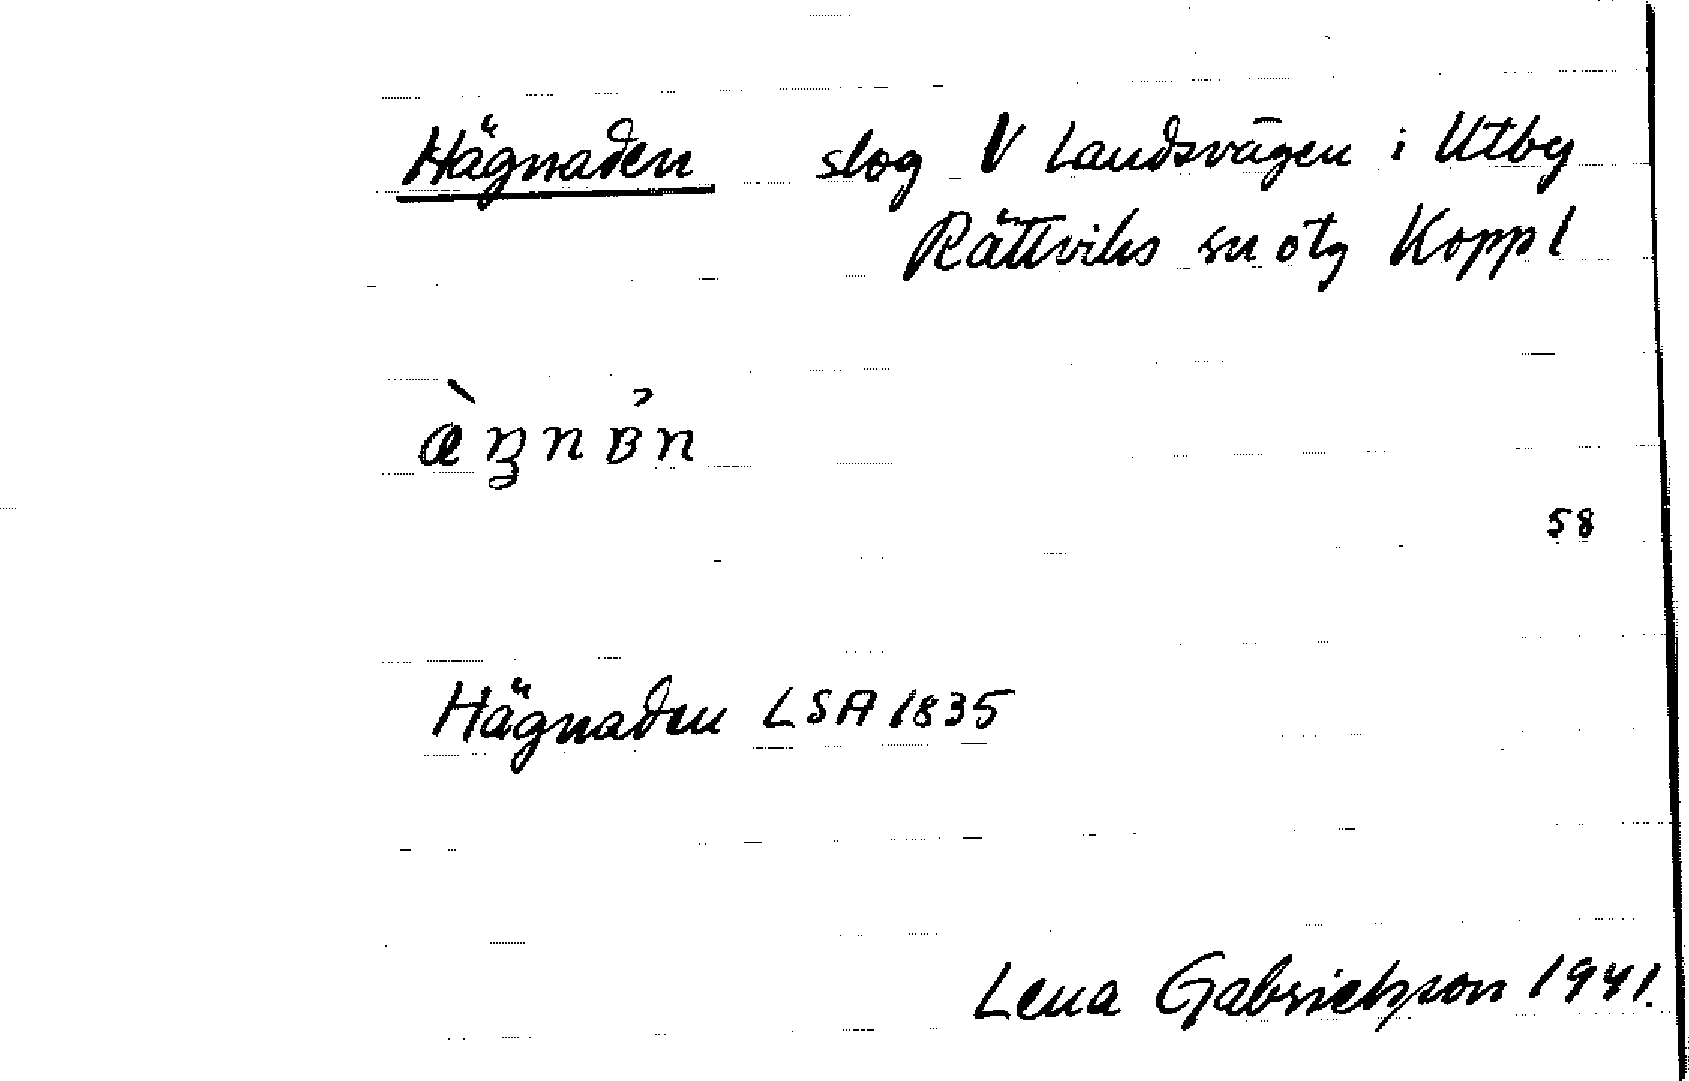 Hägnaden slog V Landsvägen i Utby
Rättviks sn o tg Koppl
58
Hägnaden LSA 1835
Lena Gabrielsson 1941.